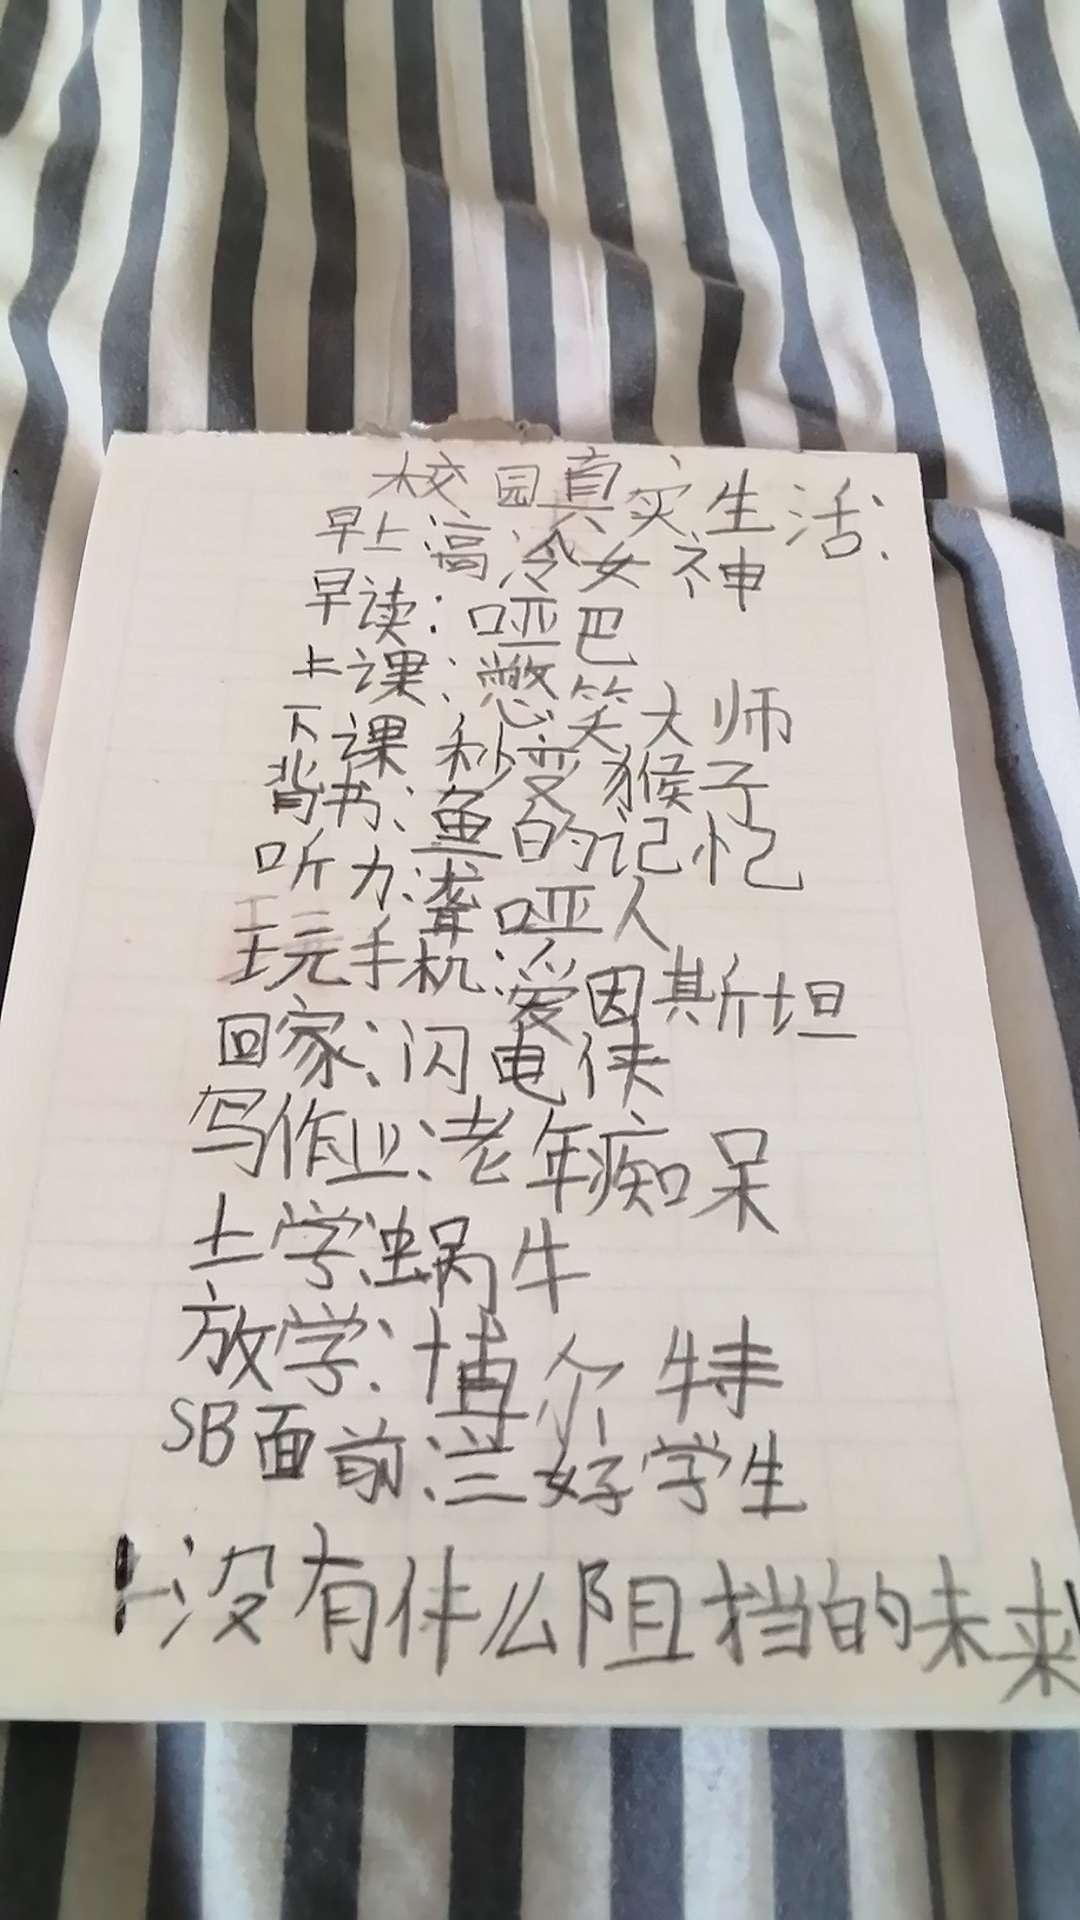 校园真实生活:
早上:高冷女神
早读:哑巴
上课:憋笑大师
下课 秒变猴子
背书:鱼的记忆
听力:聋哑人
玩手机:爱因斯坦
回家:闪电侠
写作业:老年痴呆
上学:蜗牛
放学:博尔特
SB面前:三好学生
没有什么阻挡的未来